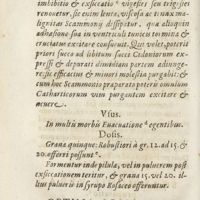 imbibitio & exsiccatio ᵘ vigesies seu trigesies
renouetur, sic enim lenta, viscosa ac tenax ma-
lignitas Scammonij dissipatur, qua alioquin
adhæsione sua in ventriculi tunicis tormina &
cruciatum excitare consueuit. Qui velet, poterit
priori succo ad libitum succi Cidoniorum ex-
pressi & depurati dimidiam partem adiunge-
re: sic efficacius & minori molestia purgabit: &
cum hoc Scammonio præparato poteris omnium
Catharticorum vim purgantem excitare &
acuere.
Vsus.
In multis morbis Euacuatione ᵈ egentibus.
Dosis.
Grana quinque: Robustiori à gr. 12. ad 15. &
20. offerri possunt ᵉ.
Formentur inde pilulæ, vel in puluerem post
exsiccationem teritur, & grana 15. vel 20. il-
lius pulueris in syrupo Rosaceo offeruntur.